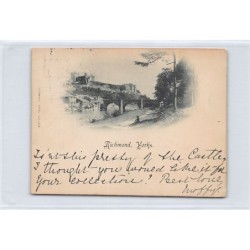 Richmond, Yorks.
Isn't this pretty of the Castle,
I thought you would like it for
Your Collection! Best love,